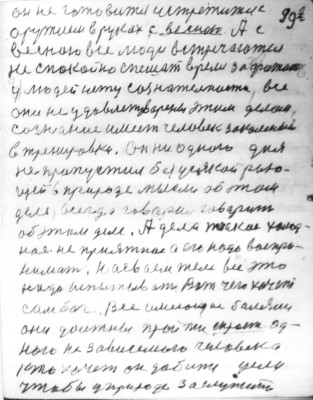 он не готовится встретится с
оружием в руках с весной. А с
весною все люди встречаются
не спокойно спешат время захватать
у людей нету сознательности, все
они не удовлетворены этим делом,
сознание имеет человек закаленный
в тренировки. Он не одного дня
не пропустил без всякой рабо-
ты в природе мысли об этом
деле, всегда говорил говорит
об этом деле. А дела такие холод-
ная не приятная а его надо воспри-
нимать. И не вам тем все это
надо испытывать. Вот чего хочет
сам бог. Все имеющие болезни
они должны пройти од-
ного не зависемого человека
кто хочет он добится цели
чтобы в природе заслужить